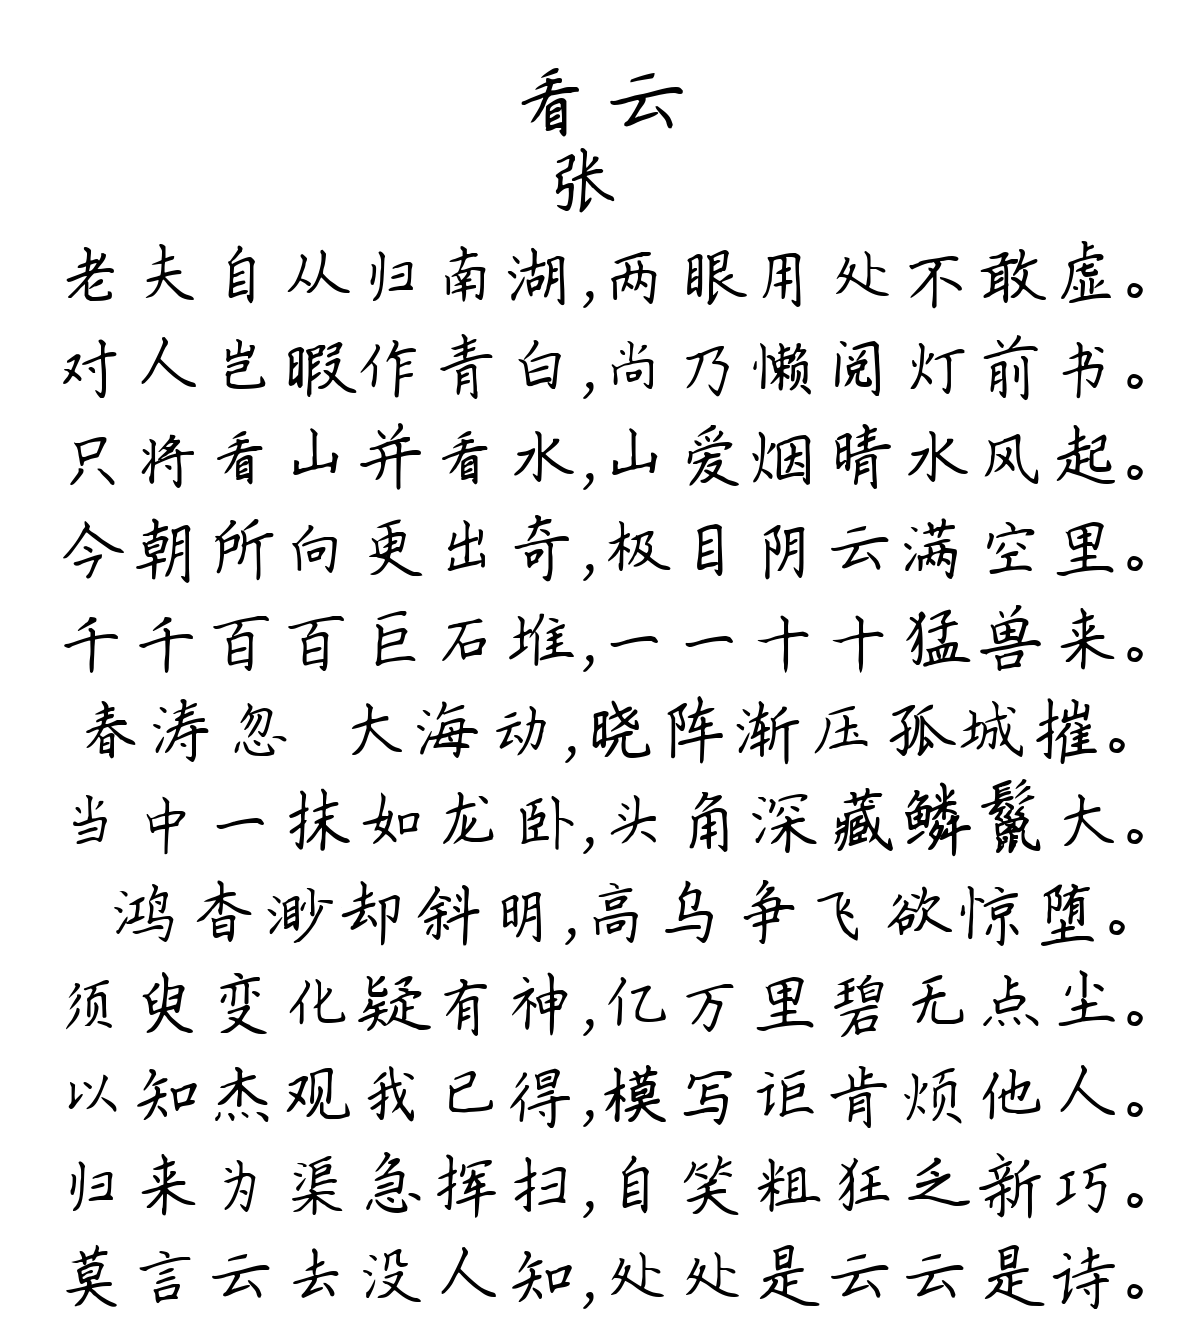 看云
张
老夫自从归南湖,两眼用处不敢虚。
对人岂暇作青白,尚乃懒阅灯前书。
只将看山并看水,山爱烟晴水风起。
今朝所向更出奇,极目阴云满空里。
千千百百巨石堆,一一十十猛兽来。
春涛忽 大海动,晓阵渐压孤城摧。
当中一抹如龙卧,头角深藏鳞鬣大。
鸿杳渺却斜明,高乌争飞欲惊堕。
须臾变化疑有神,亿万里碧无点尘。
以知杰观我已得,模写讵肯烦他人。
归来为渠急挥扫,自笑粗狂乏新巧。
莫言云去没人知,处处是云云是诗。